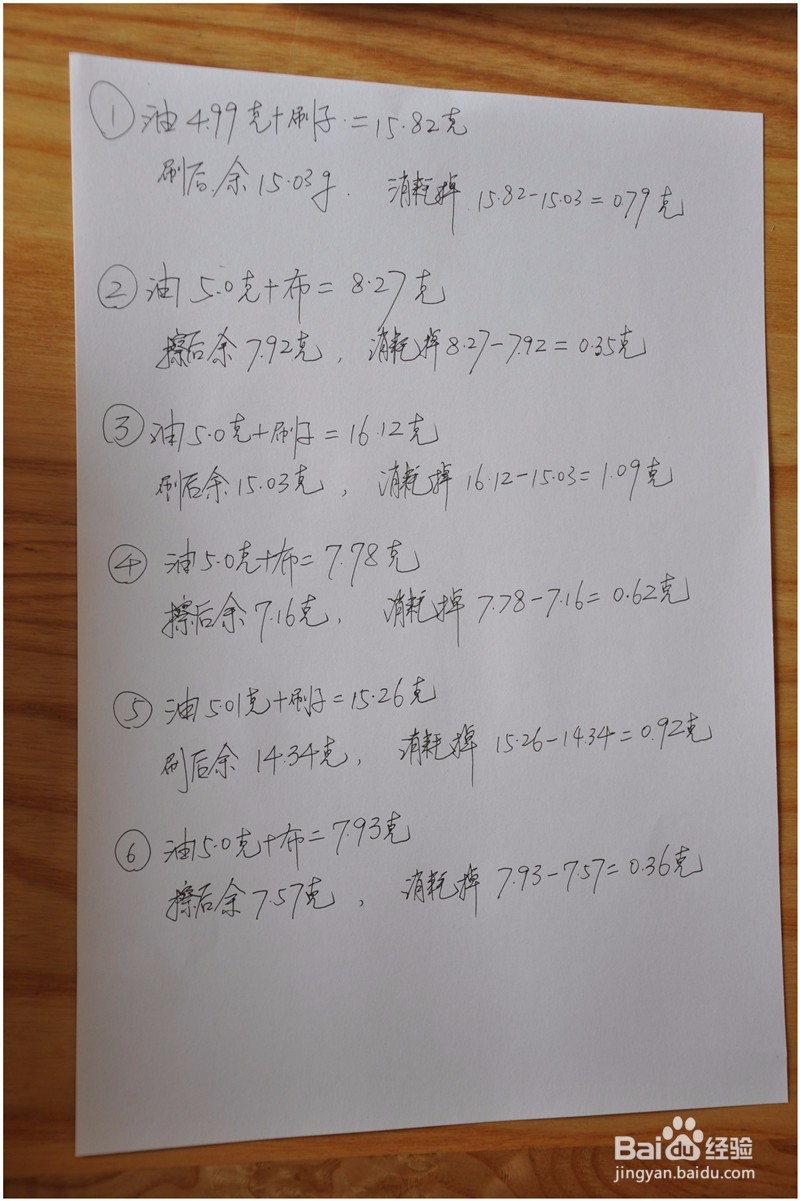 ① 油4.99克+刷子=15.82克
刷后余15.03g. 消耗掉 15.82-15.03=0.79克
② 油5.0克+布=8.27克
擦后余7.92克, 消耗掉8.27-7.92=0.35克
③ 油5.0克+刷子=16.12克
刷后余15.03克, 消耗掉16.12-15.03=1.09克
④ 油5.0克+布=7.78克
擦后余7.16克, 消耗掉7.78-7.16=0.62克
⑤ 油5.01克+刷子=15.26克
刷后余14.34克, 消耗掉15.26-14.34=0.92克
⑥ 油5.0克+布=7.93克
擦后余7.57克, 消耗掉7.93-7.57=0.36克
Baidu经验
jingyan.baidu.com